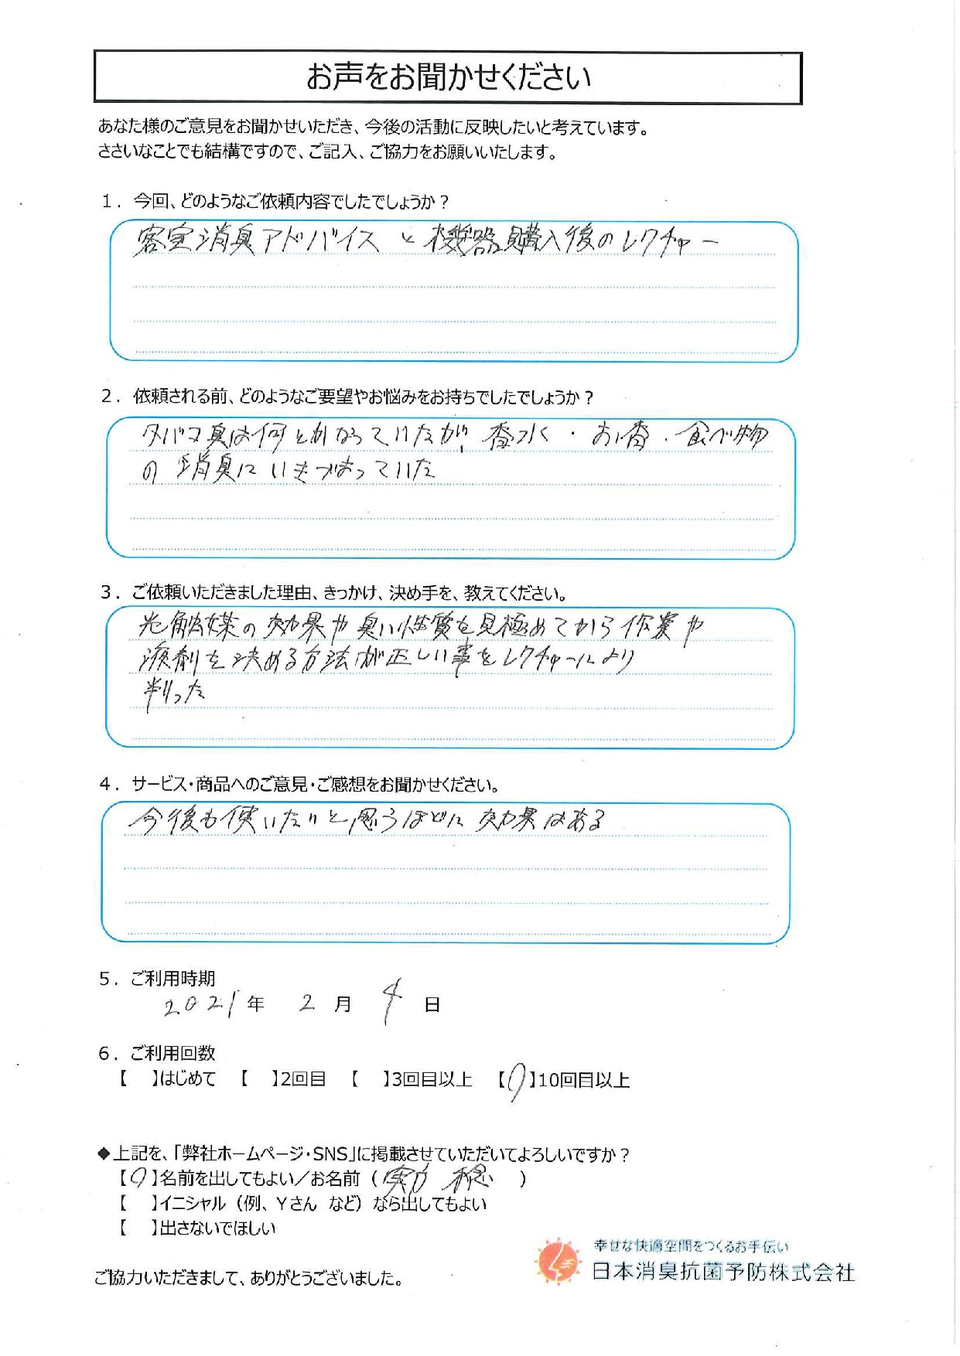 お声をお聞かせください
あなた様のご意見をお聞かせいただき、今後の活動に反映したいと考えています。
ささいなことでも結構ですので、ご記入、ご協力をお願いいたします。
1．今回、どのようなご依頼内容でしたでしょうか？
客室消臭アドバイスと機器購入後のレクチャー
2．依頼される前、どのようなご要望やお悩みをお持ちでしたでしょうか？
タバコ臭は何とかなっていたが、香水・お香・食べ物
の消臭にいきづまっていた
3．ご依頼いただきました理由、きっかけ、決め手を、教えてください。
光触媒の効果や臭い性質を見極めてから作業や
液剤を決める方法が正しい事をレクチャーにより
判った
4．サービス・商品へのご意見・ご感想をお聞かせください。
今後も使いたいと思うほどに効果はある
5．ご利用時期
2021年 2月 4日
6．ご利用回数
【 】はじめて 【 】2回目 【 】3回目以上 【○】10回目以上
◆上記を、「弊社ホームページ・SNS」に掲載させていただいてよろしいですか？
【○】名前を出してもよい／お名前（ ）
【 】イニシャル（例、Yさん など）なら出してもよい
【 】出さないでほしい
幸せな快適空間をつくるお手伝い
日本消臭抗菌予防株式会社
ご協力いただきまして、ありがとうございました。